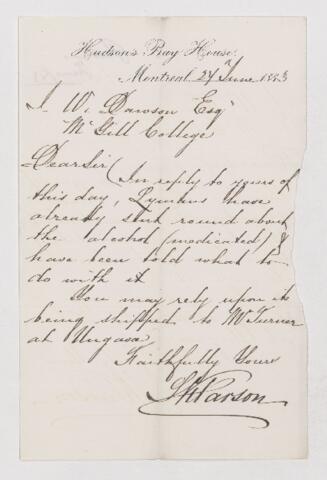 Hudson's Bay House.
Montreal 27th June 1883
J. W. Dawson Esqr
McGill College
Dear Sir (In reply to yours of
this day, Lymans have
already sent round about
the alcohol (medicated) &
have been told what to
do with it
You may rely upon its
being shipped to Mr Turner
at Ungava
Faithfully Yours
S K Parson